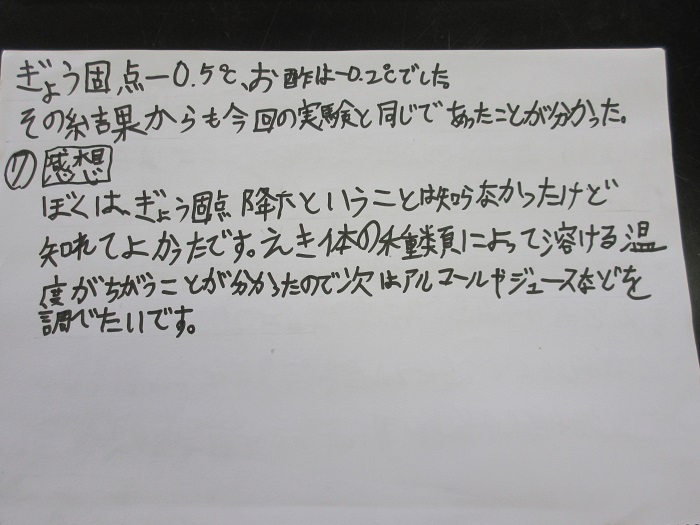 ぎょう固点−0.5℃、お酢は−0.2℃でした。
その結果からも今回の実験と同じであったことが分かった。
⑦ 感想
ぼくは、ぎょう固点降下ということは知らなかったけど
知れてよかったです。えき体の種類によって溶ける温
度がちがうことが分かったので次はアルコールやジュースなどを
調べたいです。